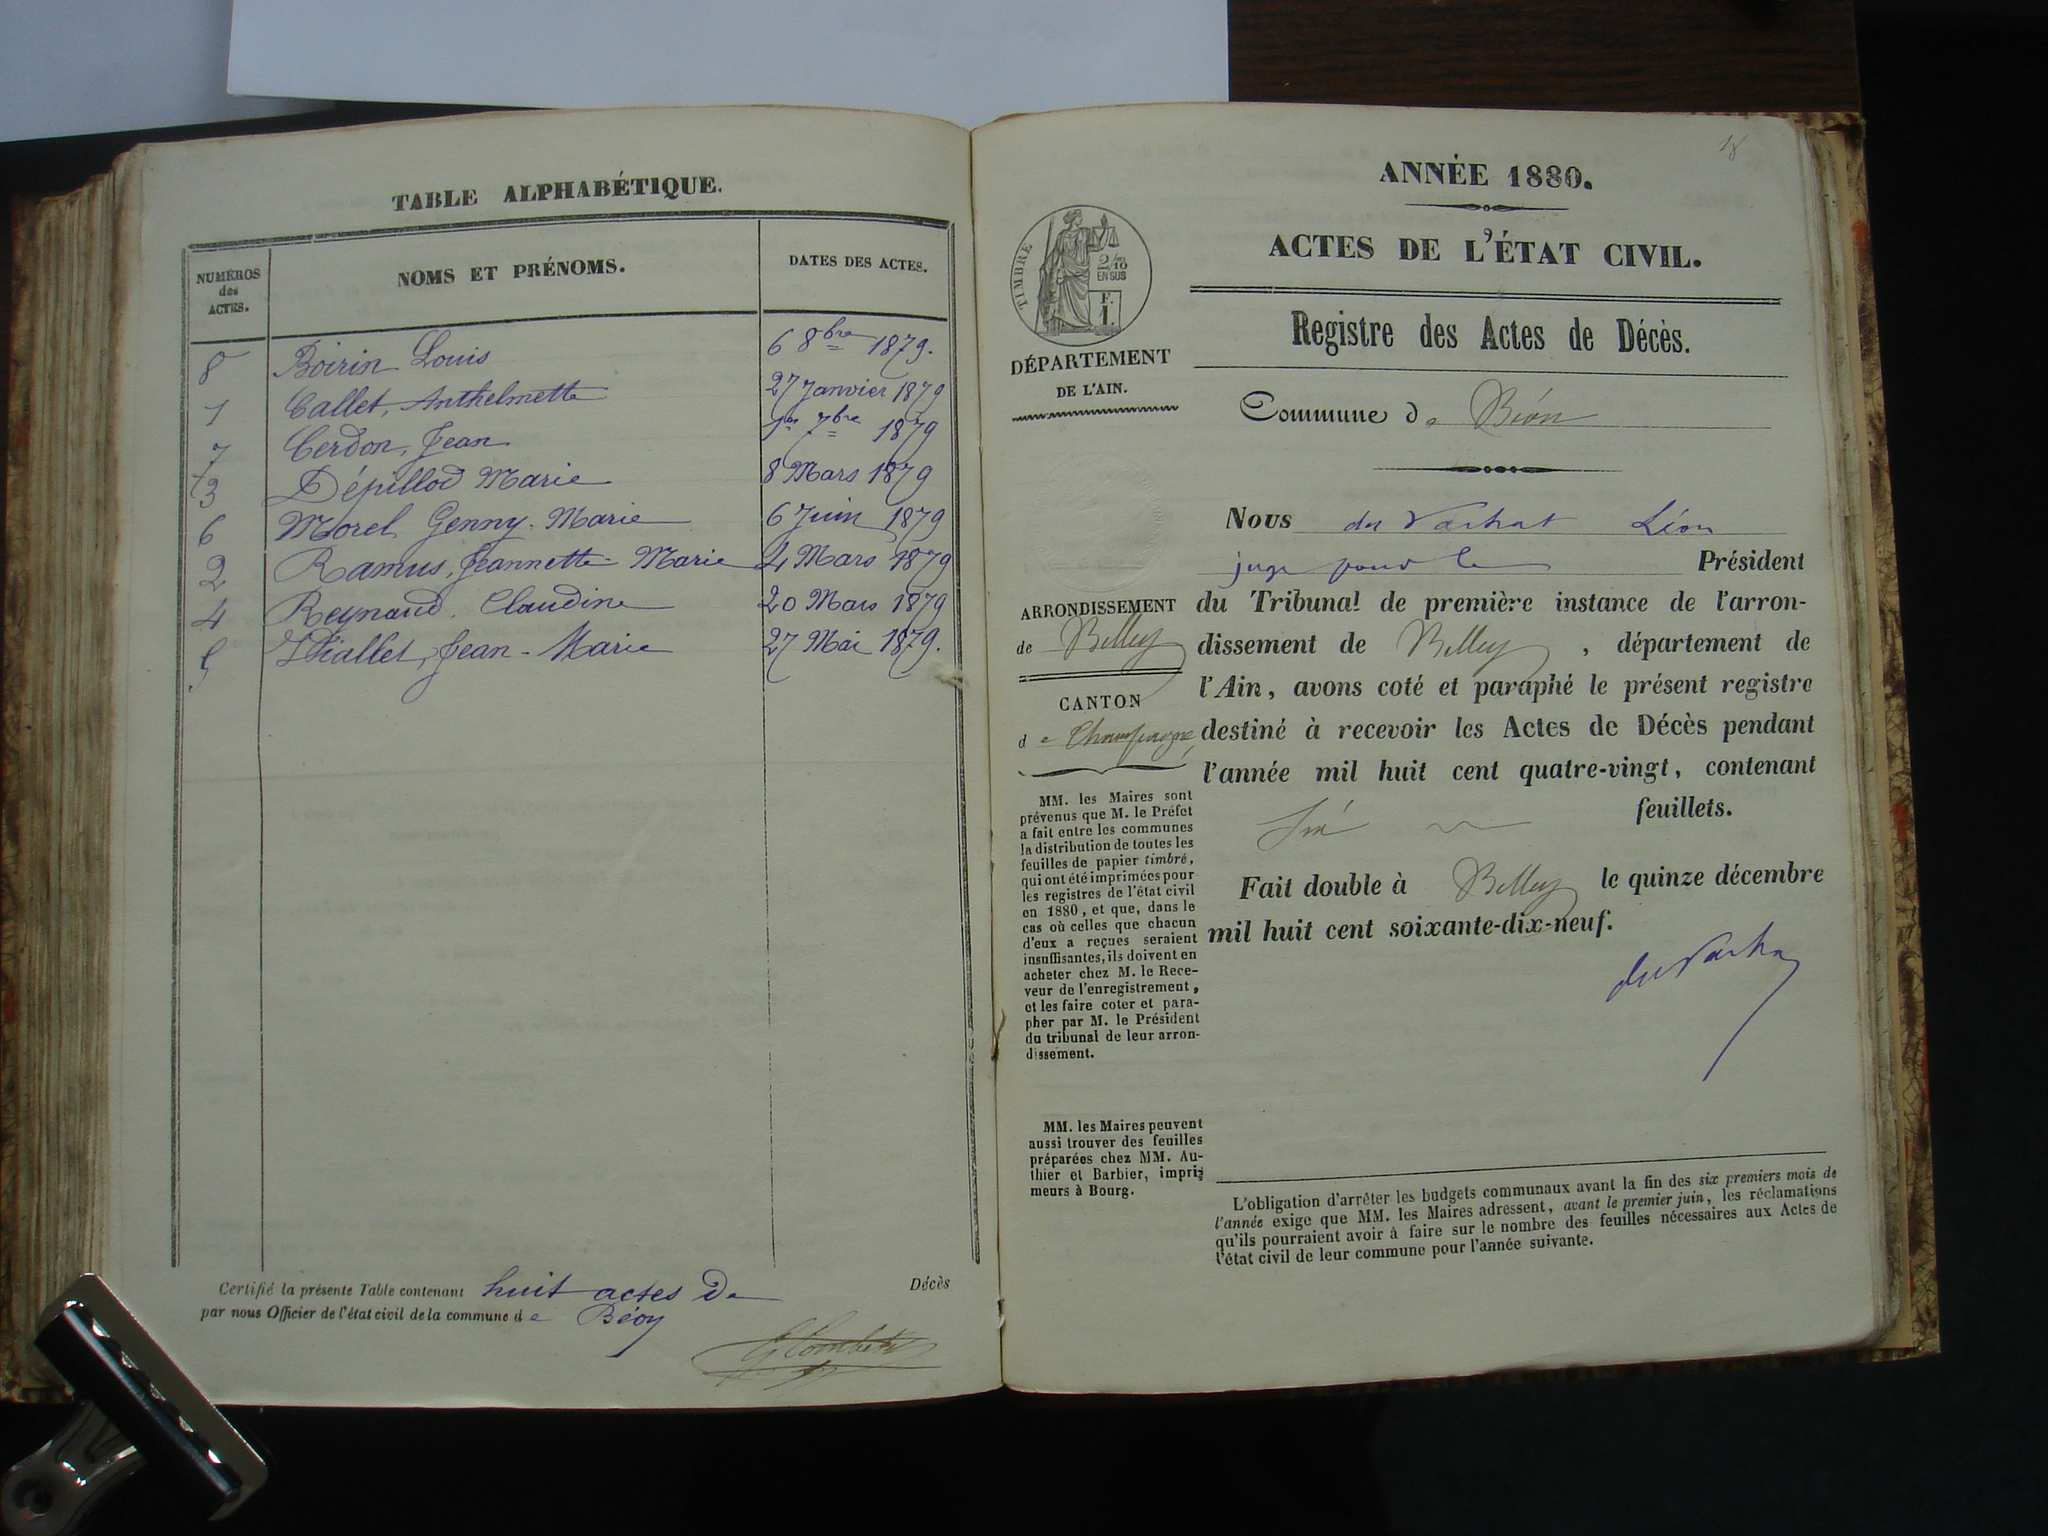 TABLE ALPHABÉTIQUE.
NUMÉROS
des
ACTES.
NOMS ET PRÉNOMS.
DATES DES ACTES.
8 Boirin Louis 6 8bre 1879.
1 Callet, Anthelmette 27 Janvier 1879
7 Cerdon, Jean 1er 7bre 1879
3 Dépillod Marie 8 Mars 1879
6 Morel Genny-Marie 6 Juin 1879
2 Ramus, Jeannette-Marie 4 Mars 1879
4 Reynaud, Claudine 20 Mars 1879
5 Thiallet, Jean-Marie 27 Mai 1879.
Certifié la présente Table contenant huit actes de Décès
par nous Officier de l'état civil de la commune de Béon
18
ANNÉE 1880.
ACTES DE L'ÉTAT CIVIL.
Registre des Actes de Décès.
TIMBRE
2/10
EN SUS
F.
1.
DÉPARTEMENT
DE L'AIN.
Commune de Béon
Nous du Vachat Léon
juge pour le Président
du Tribunal de première instance de l'arron-
dissement de Belley, département de
l'Ain, avons coté et paraphé le présent registre
destiné à recevoir les Actes de Décès pendant
l'année mil huit cent quatre-vingt, contenant
feuillets.
Fait double à Belley le quinze décembre
mil huit cent soixante-dix-neuf.
du Vachat
ARRONDISSEMENT
de Belley
CANTON
de Champagne
MM. les Maires sont
prévenus que M. le Préfet
a fait entre les communes
la distribution de toutes les
feuilles de papier timbré,
qui ont été imprimées pour
les registres de l'état civil
en 1880, et que, dans le
cas où celles que chacun
d'eux a reçues seraient
insuffisantes, ils doivent en
acheter chez M. le Rece-
veur de l'enregistrement,
et les faire coter et para-
pher par M. le Président
du tribunal de leur arron-
dissement.
MM. les Maires peuvent
aussi trouver des feuilles
préparées chez MM. Au-
thier et Barbier, impri-
meurs à Bourg.
L'obligation d'arrêter les budgets communaux avant la fin des six premiers mois de
l'année exige que MM. les Maires adressent, avant le premier juin, les réclamations
qu'ils pourraient avoir à faire sur le nombre des feuilles nécessaires aux Actes de
l'état civil de leur commune pour l'année suivante.